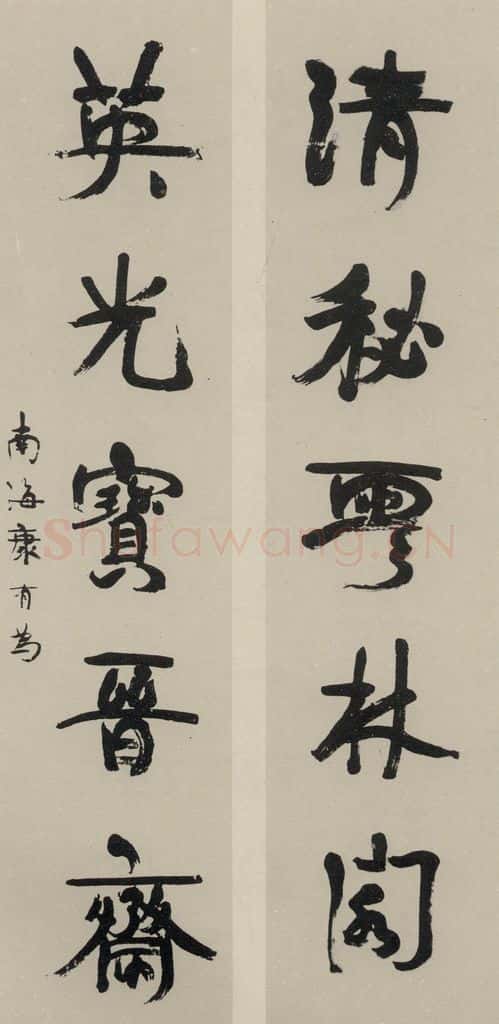 清秘雲林閣
英光寶晉齋
南海康有為
Shufawang.CN